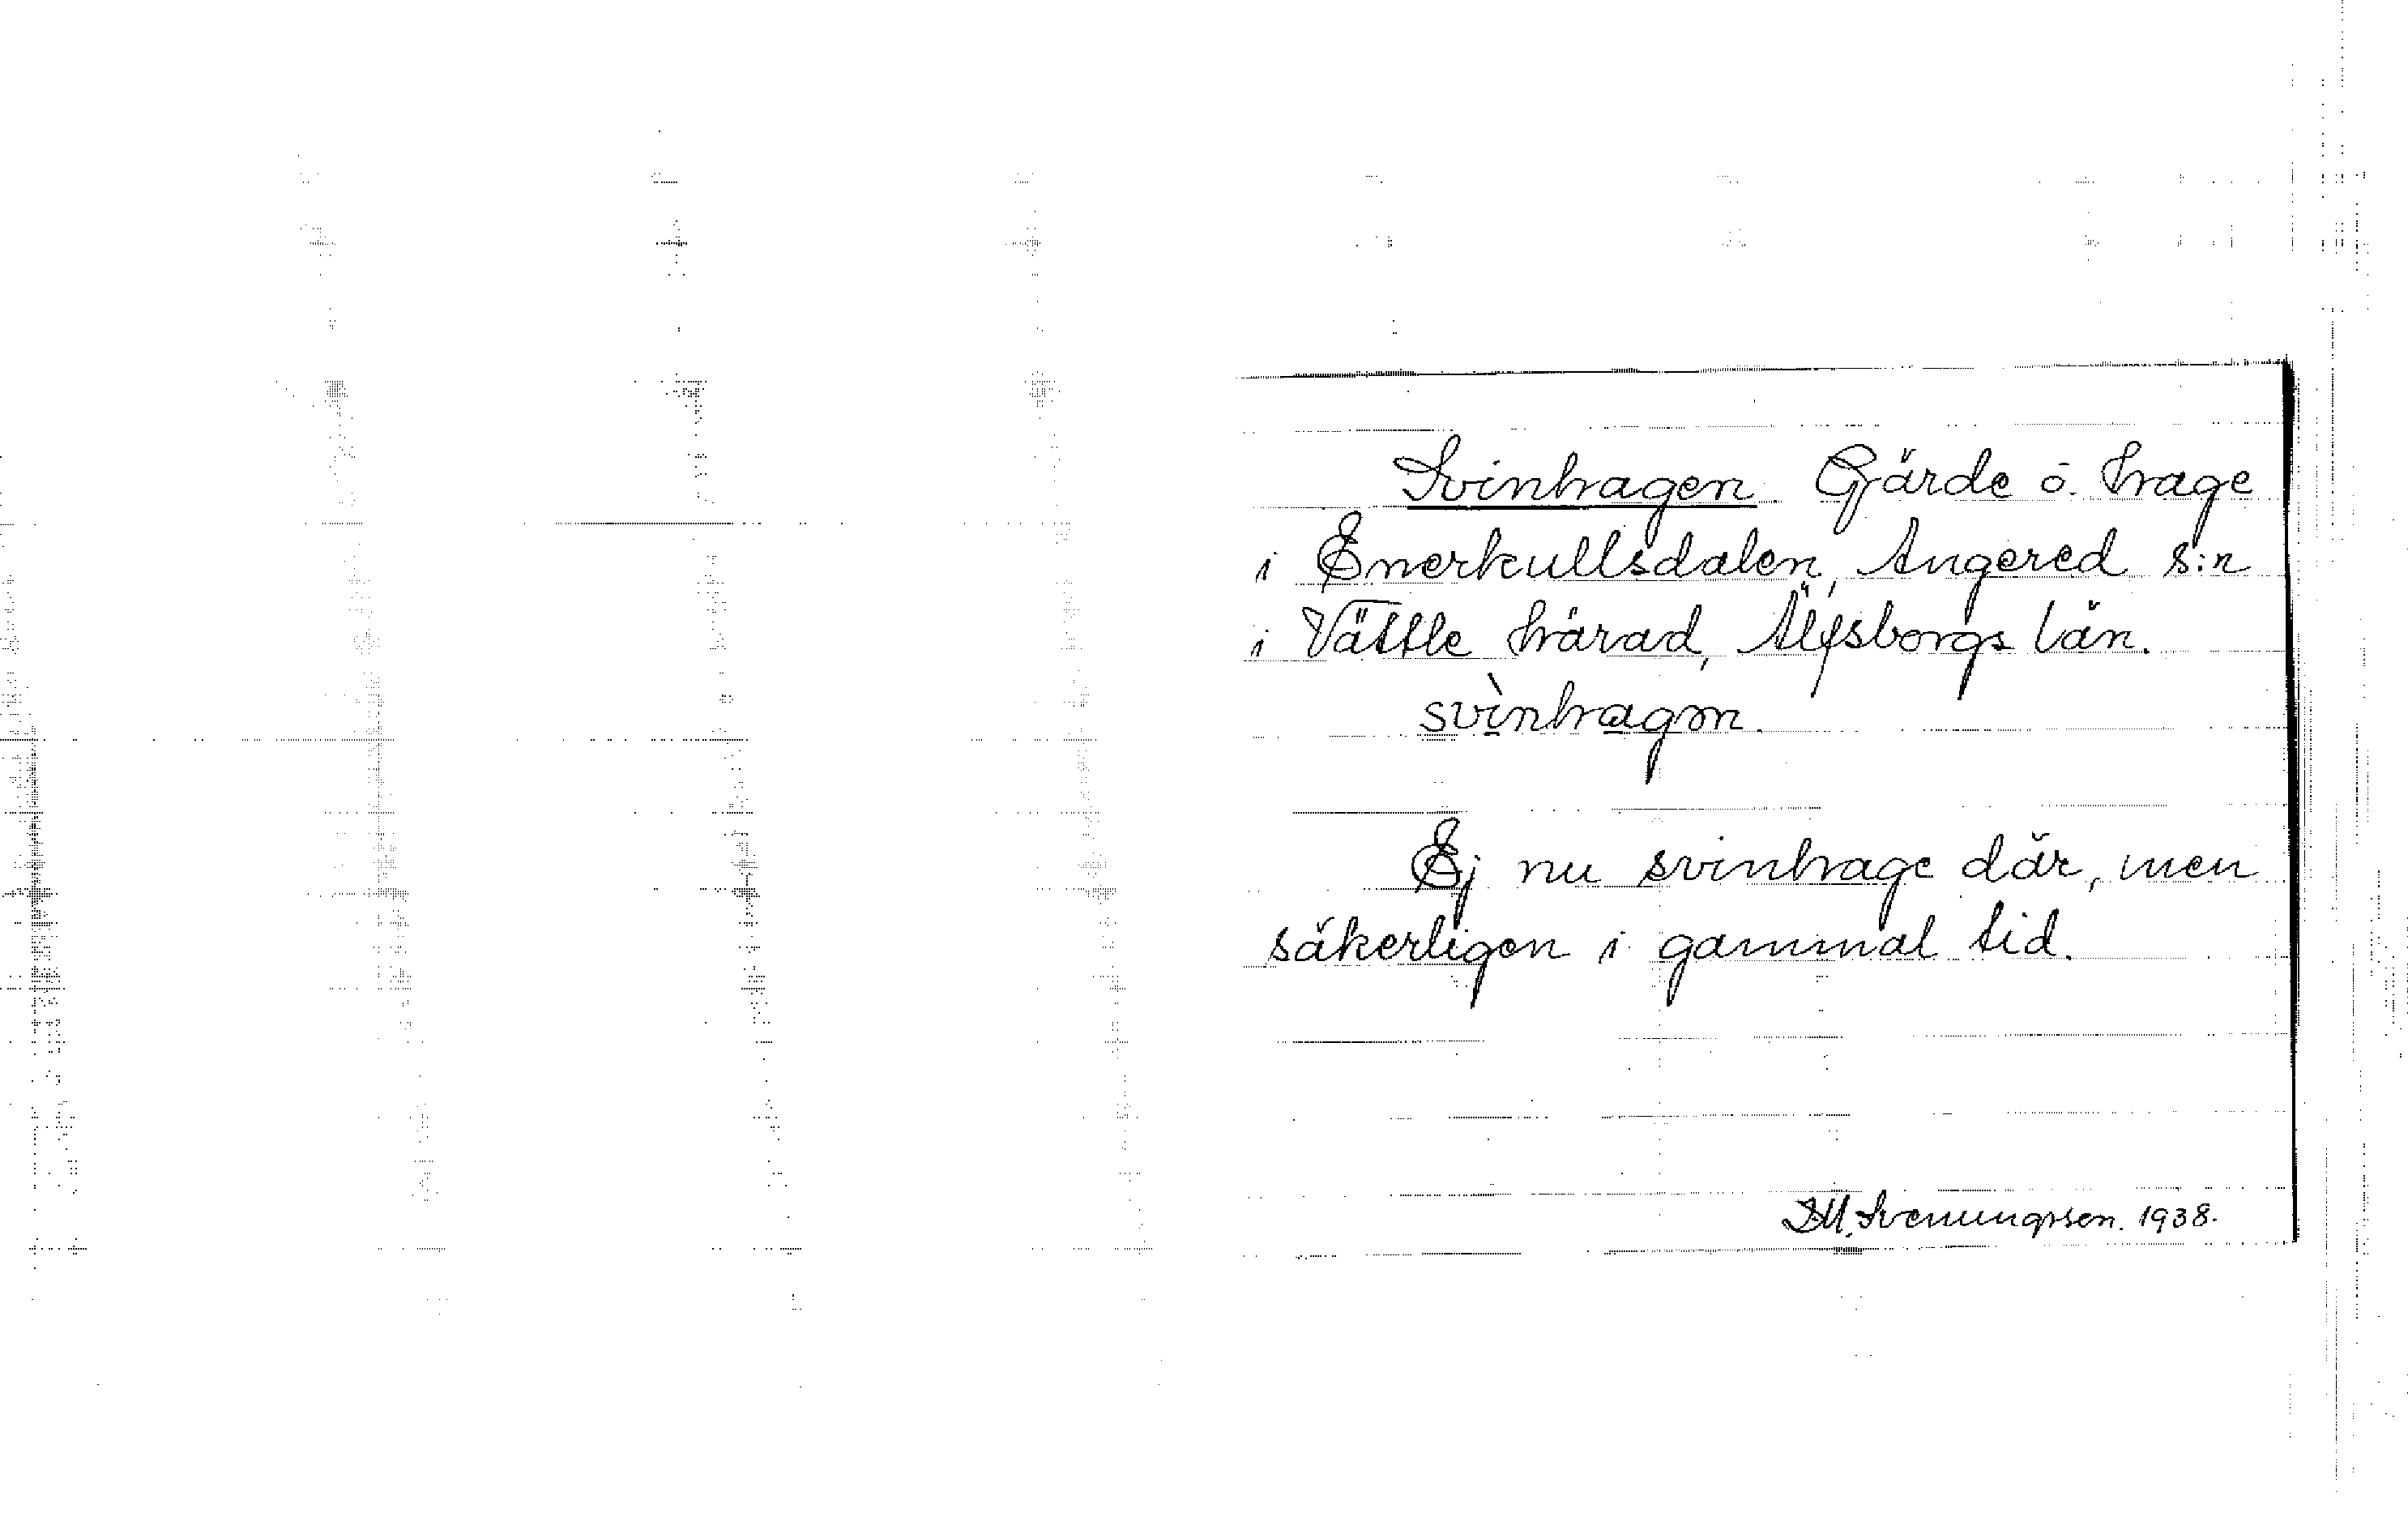 Svinhagen. Gärde o. hage
i Enerkullsdalen, Angered s:n
i Vättle härad, Älfsborgs län.
svìnhagən.
Ej nu svinhage där, men
säkerligen i gammal tid.
D.M. Svenungsson. 1938.